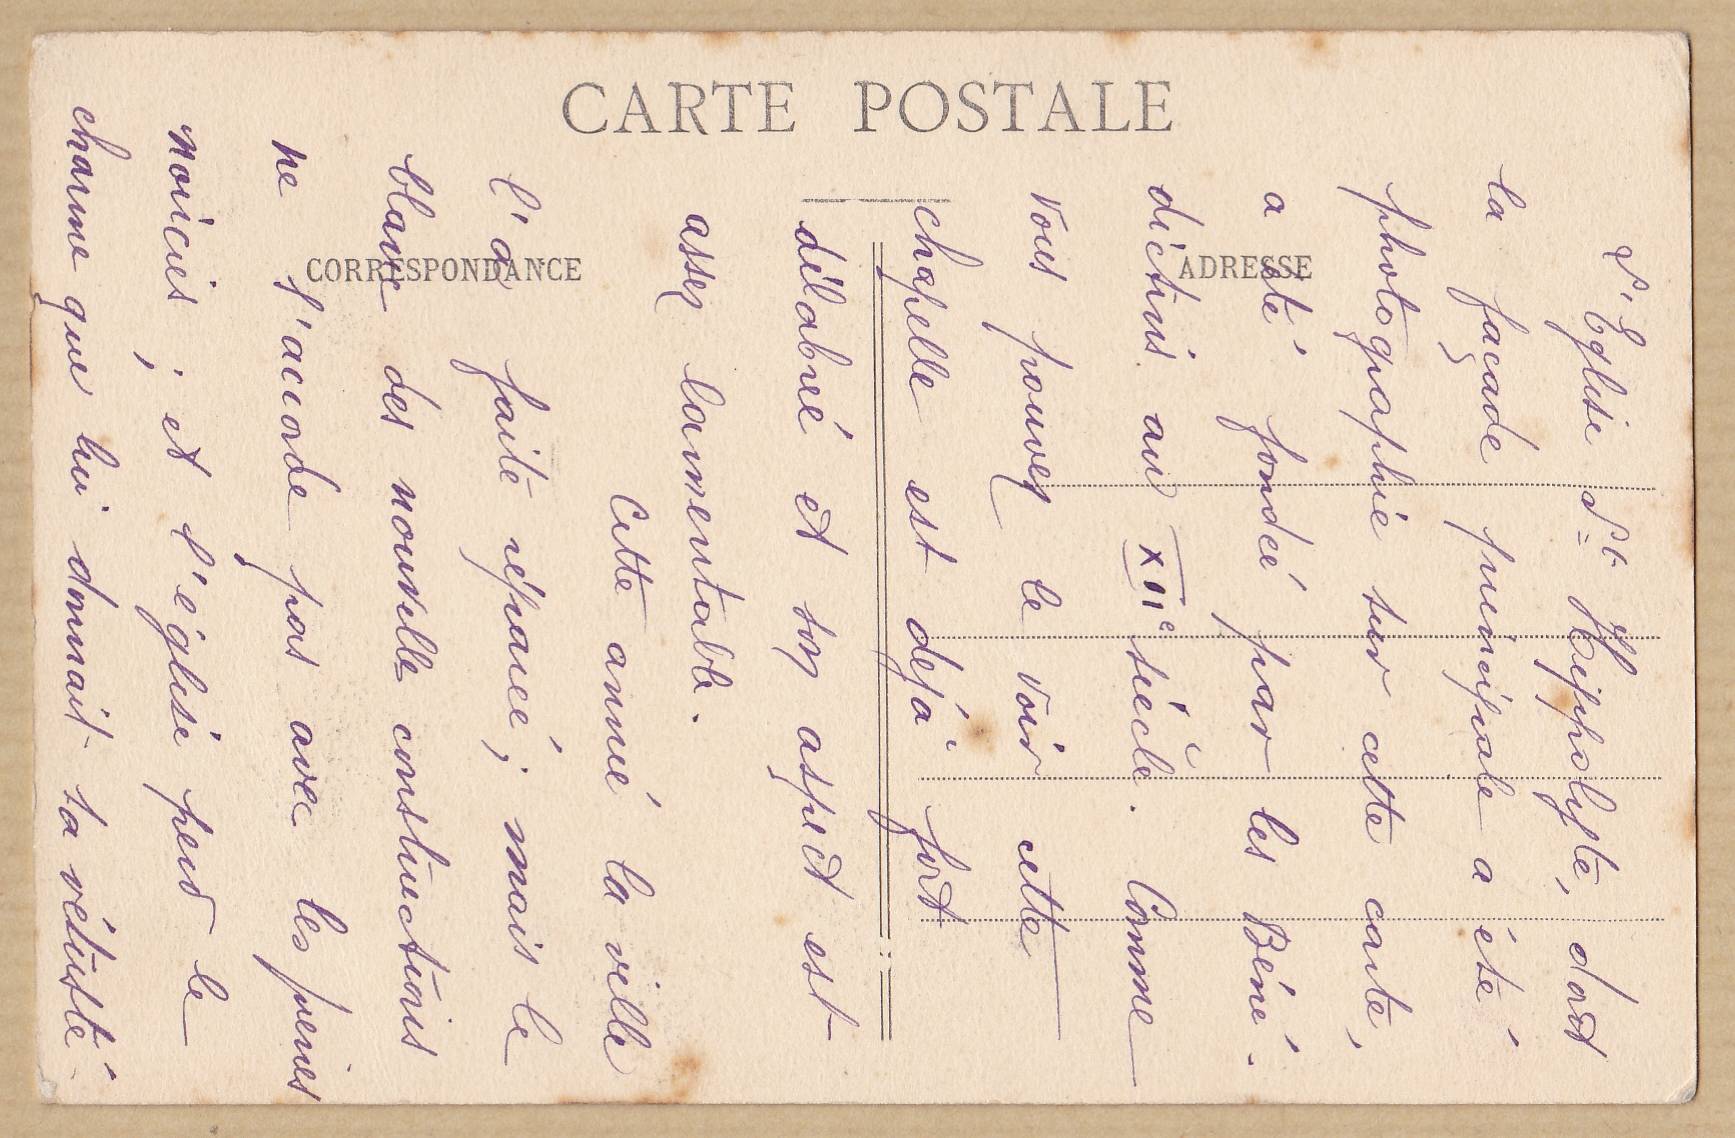 CARTE POSTALE
CORRESPONDANCE
ADRESSE
L'Eglise St. Hippolyte, dont
la façade principale a été
photographiée sur cette carte,
a été fondée par les Béné-
dictins au XIIe siècle. Comme
vous pouvez le voir cette
chapelle est déjà fort
délabré et son aspect est
assez lamentable.
Cette année la ville
l'a faite réparée; mais le
blanc des nouvelle constructions
ne s'accorde pas avec les pierres
noircies; et l'église perd le
charme que lui donnait sa vétusté.